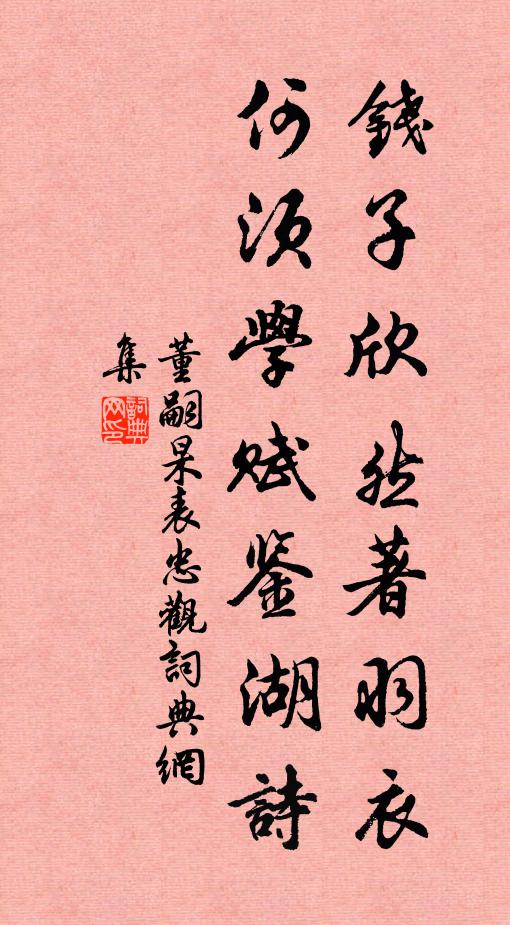 錢子欣然著羽衣
何須學賦鉴湖詩
董嗣杲表忠觀詞典網
集
詞典
网印